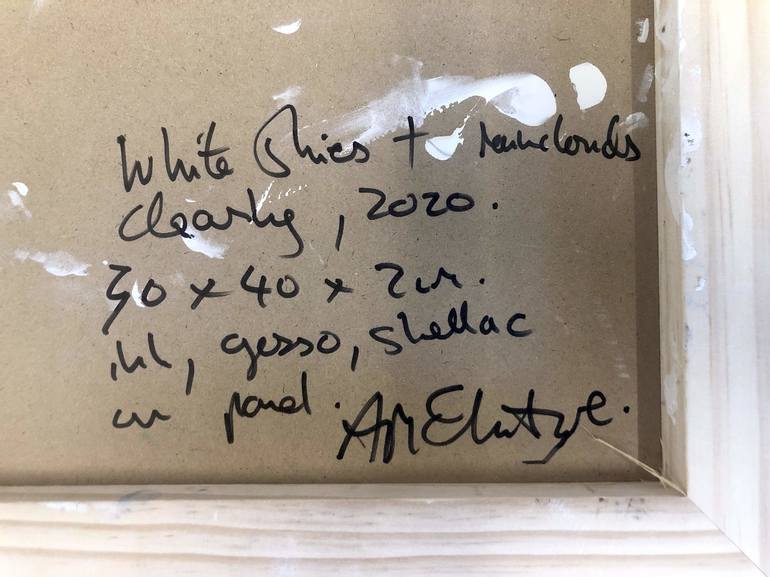 White Skies + rainclouds
clearing, 2020.
30 x 40 x 2cm.
ink, gesso, shellac
on panel.